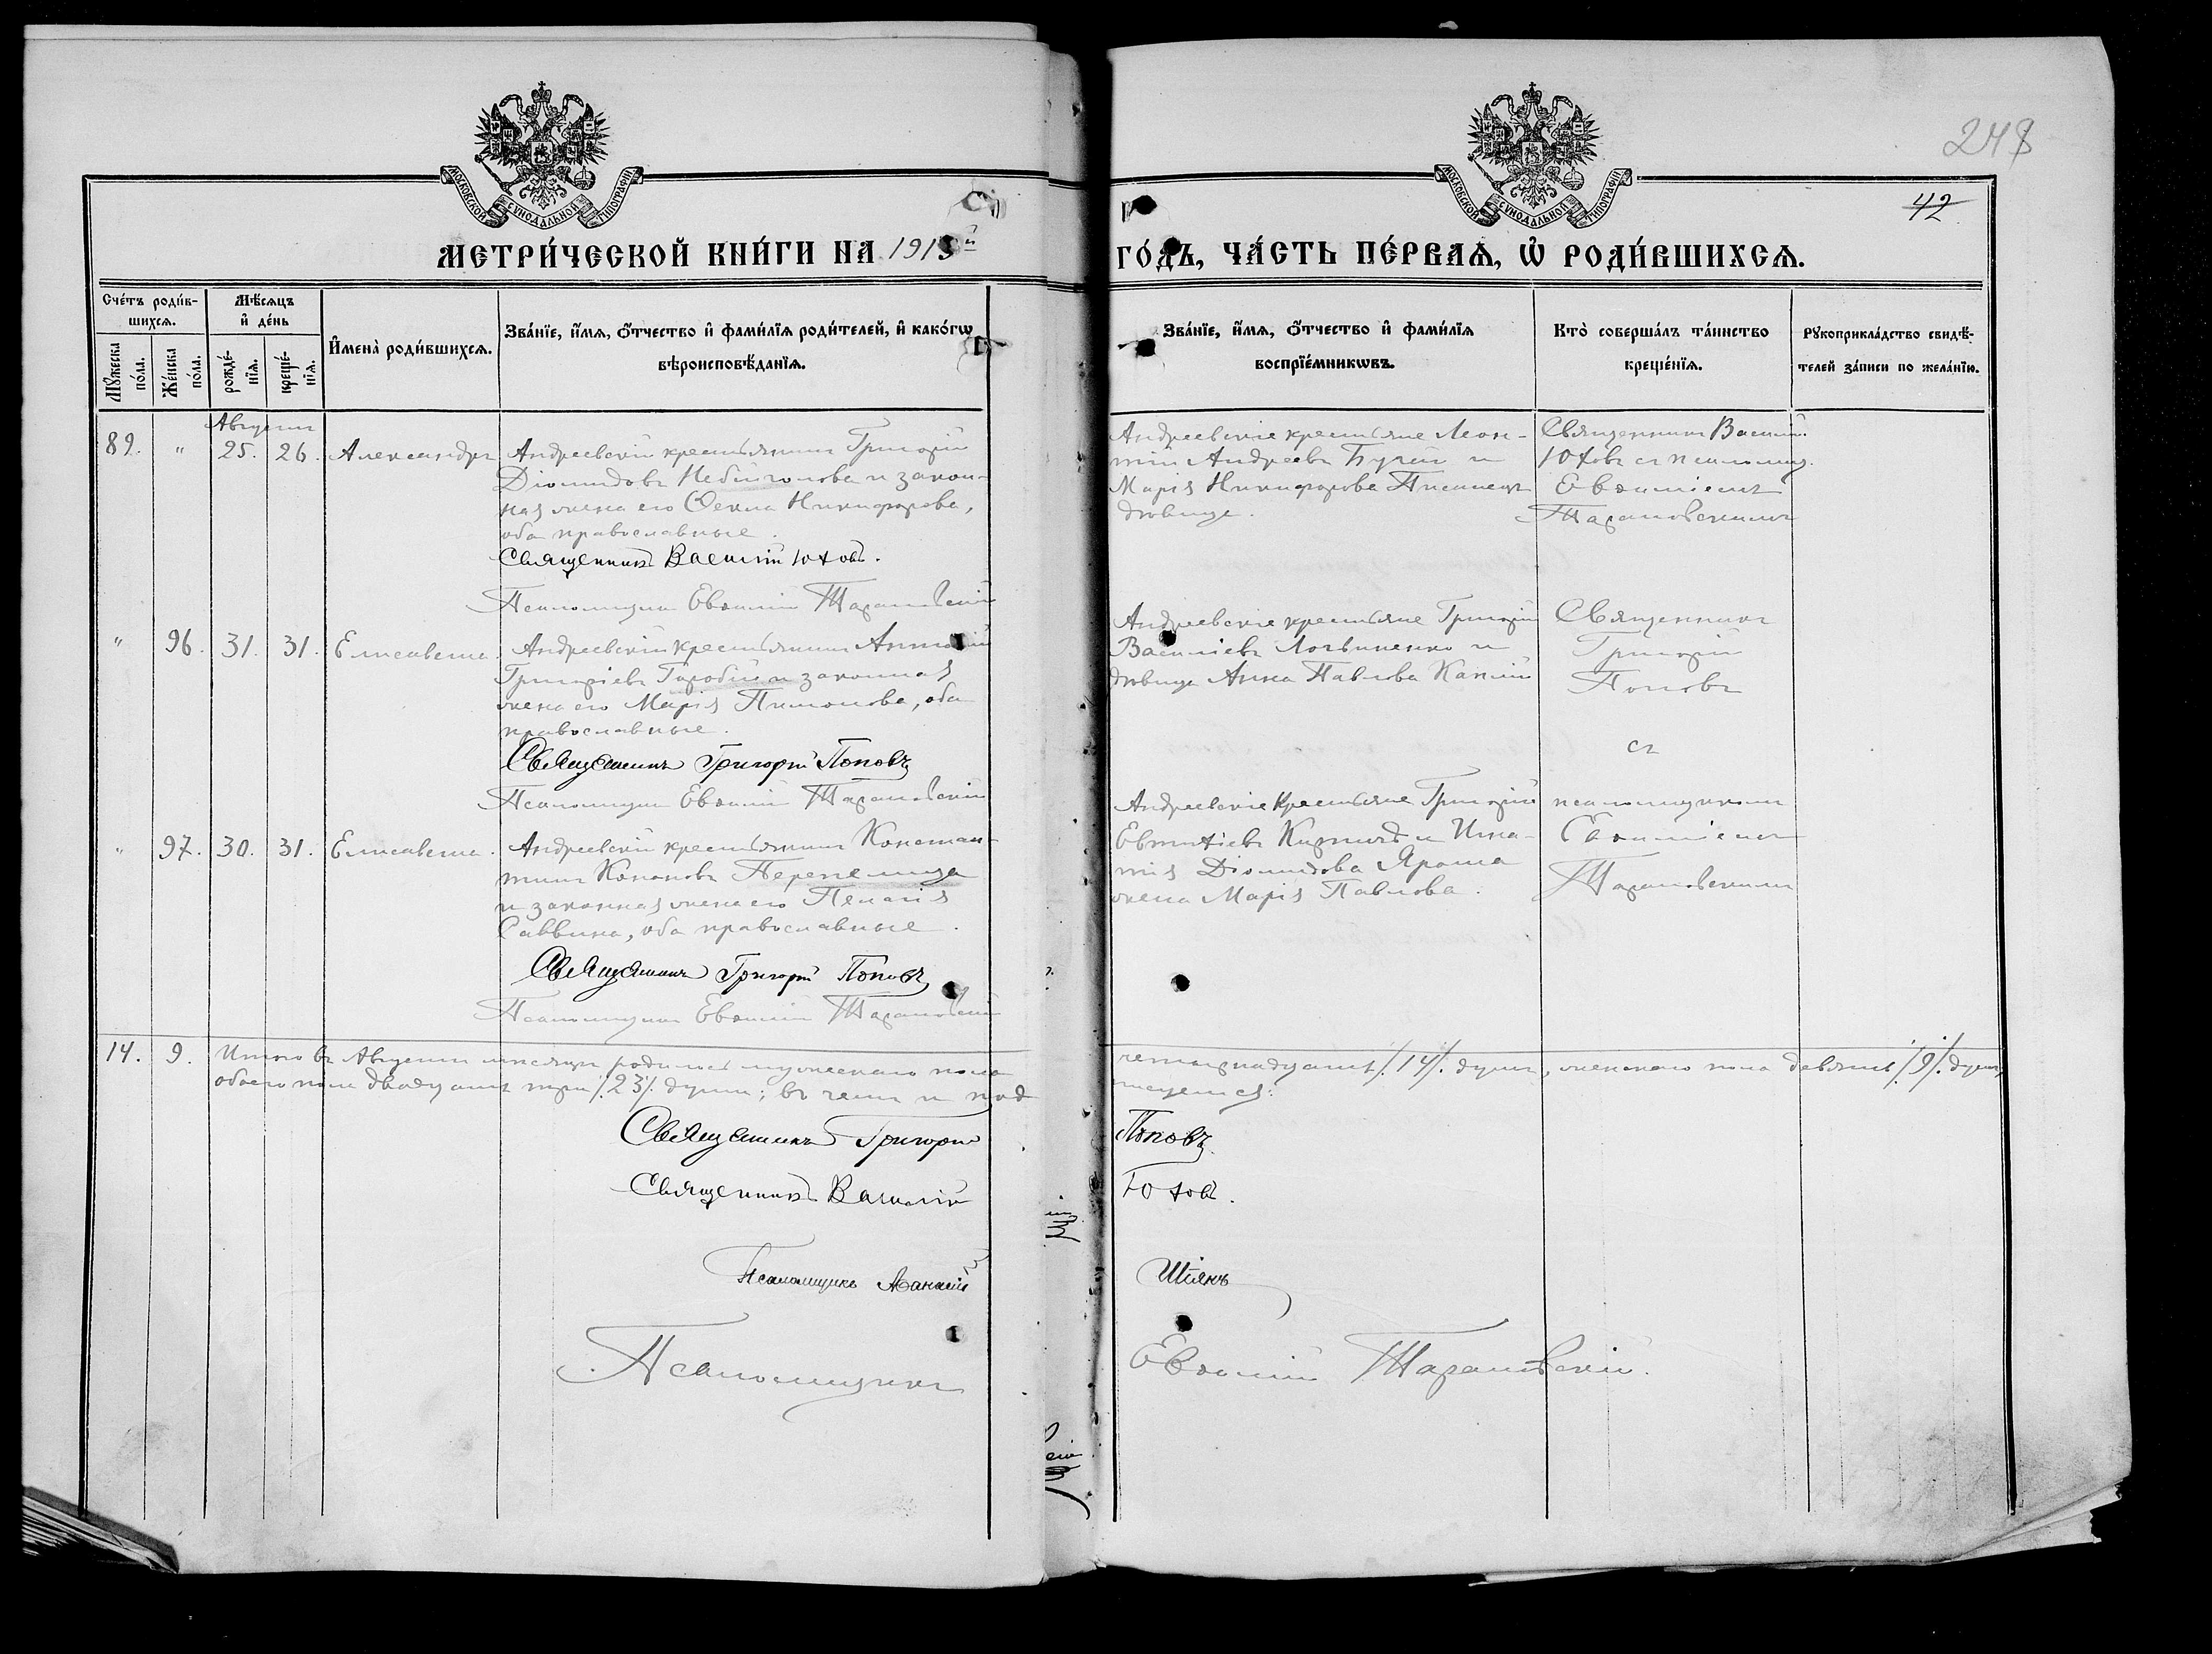 248
42
МОСКОВСКОЙ СѴНОДАЛЬНОЙ ТИПОГРАФІИ
МОСКОВСКОЙ СѴНОДАЛЬНОЙ ТИПОГРАФІИ
МЕТРИ́ЧЕСКОЙ КНИ́ГИ НА
ГО́ДЪ, ЧА́СТЬ ПЕ́РВАѦ, Ѡ҆ РОДИ́ВШИХСѦ.
Сче́тъ роди́в-
шихсѧ.
Мꙋ́жеска по́ла.
Же́нска по́ла.
Мѣ́сѧцъ
и҆ де́нь
рожде́-
нїѧ.
креще́-
нїѧ.
И҆мена̀ роди́вшихсѧ.
Зва́нїе, и҆́мѧ, ѻ҆́тчество и҆ фами́лїѧ роди́телей, и҆ како́гѡ
вѣроисповѣ́данїѧ.
Зва́нїе, и҆́мѧ, ѻ҆́тчество и҆ фами́лїѧ
воспрїе́мникѡвъ.
Кто̀ соверша́лъ та́инство
креще́нїѧ.
Рꙋкоприкла́дство свидѣ́-
телей за́писи по жела́нїю.
Августъ
89. " 25. 26. Александръ
Андреевскій крестьянинъ Григорій
Діомидовъ и закон-
ная жена его Ѳекла Никифорова,
оба православные.
Священникъ Василій Юховъ.
Псаломщикъ Евѳимій Тарановскій
Андреевскіе крестьяне Леон-
тій Андреевъ и
Марія Никифорова
дѣвица.
Священникъ Василій
Юховъ съ псаломщ.
Евѳиміемъ
Тарановскимъ
" 96. 31. 31. Елисавета.
Андреевскій крестьянинъ Антоній
Григоріевъ Горобій и законная
жена его Марія Пимонова, оба
православные.
Священникъ Григорій Поповъ
Псаломщикъ Евѳимій Тарановскій
Андреевскіе крестьяне Григорій
Василіевъ Логвиненко и
дѣвица Анна Павлова
Священникъ
Григорій
Поповъ
съ
псаломщикомъ
Евѳиміемъ
Тарановскимъ
" 97. 30. 31. Елисавета.
Андреевскій крестьянинъ Констан-
тинъ Кононовъ Перепелица
и законная жена его Пелагія
Саввина, оба православные.
Священникъ Григорій Поповъ
Псаломщикъ Евѳимій Тарановскій
Андреевскіе крестьяне Григорій
Евтихіевъ и Игна-
тія Діомидова Яроша
жена Марія Павлова.
14. 9. Итого въ Августѣ мѣсяцѣ родилось мужескаго пола четырнадцать /.14/. душъ, женскаго пола девять /.9/. душъ,
обоего пола двадцать три /.23/. души; въ чемъ и подписуемся:
Священникъ Григорій Поповъ
Священникъ Василій Юховъ.
Псаломщикъ Аѳанасій Шіянъ
Псаломщикъ Евѳимій Тарановскій.